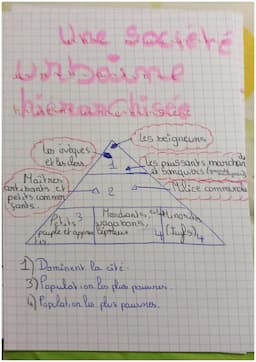 Une société
urbaine
hierarchisée
Les seigneurs
Les évêques
et les clercs
1
Les puissants marchands
et banquiers
Maîtres
artisans et
petits commer
çants
2
3
Petits
peuple et
Mendiants,
vagabons,
lépreux
4
Minorités
(Juifs)
4
1) Dominent la cité.
3) Population les plus pauvres.
4) Population les plus pauvres.